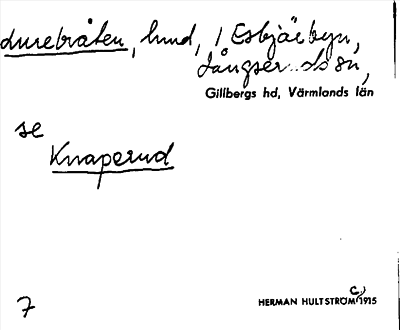 durebråten, lund, / Esbjärbyn,
Långser.. ds sn,
Gillbergs hd, Värmlands län
se
Knaperud
7
HERMAN HULTSTRÖM C) 1915